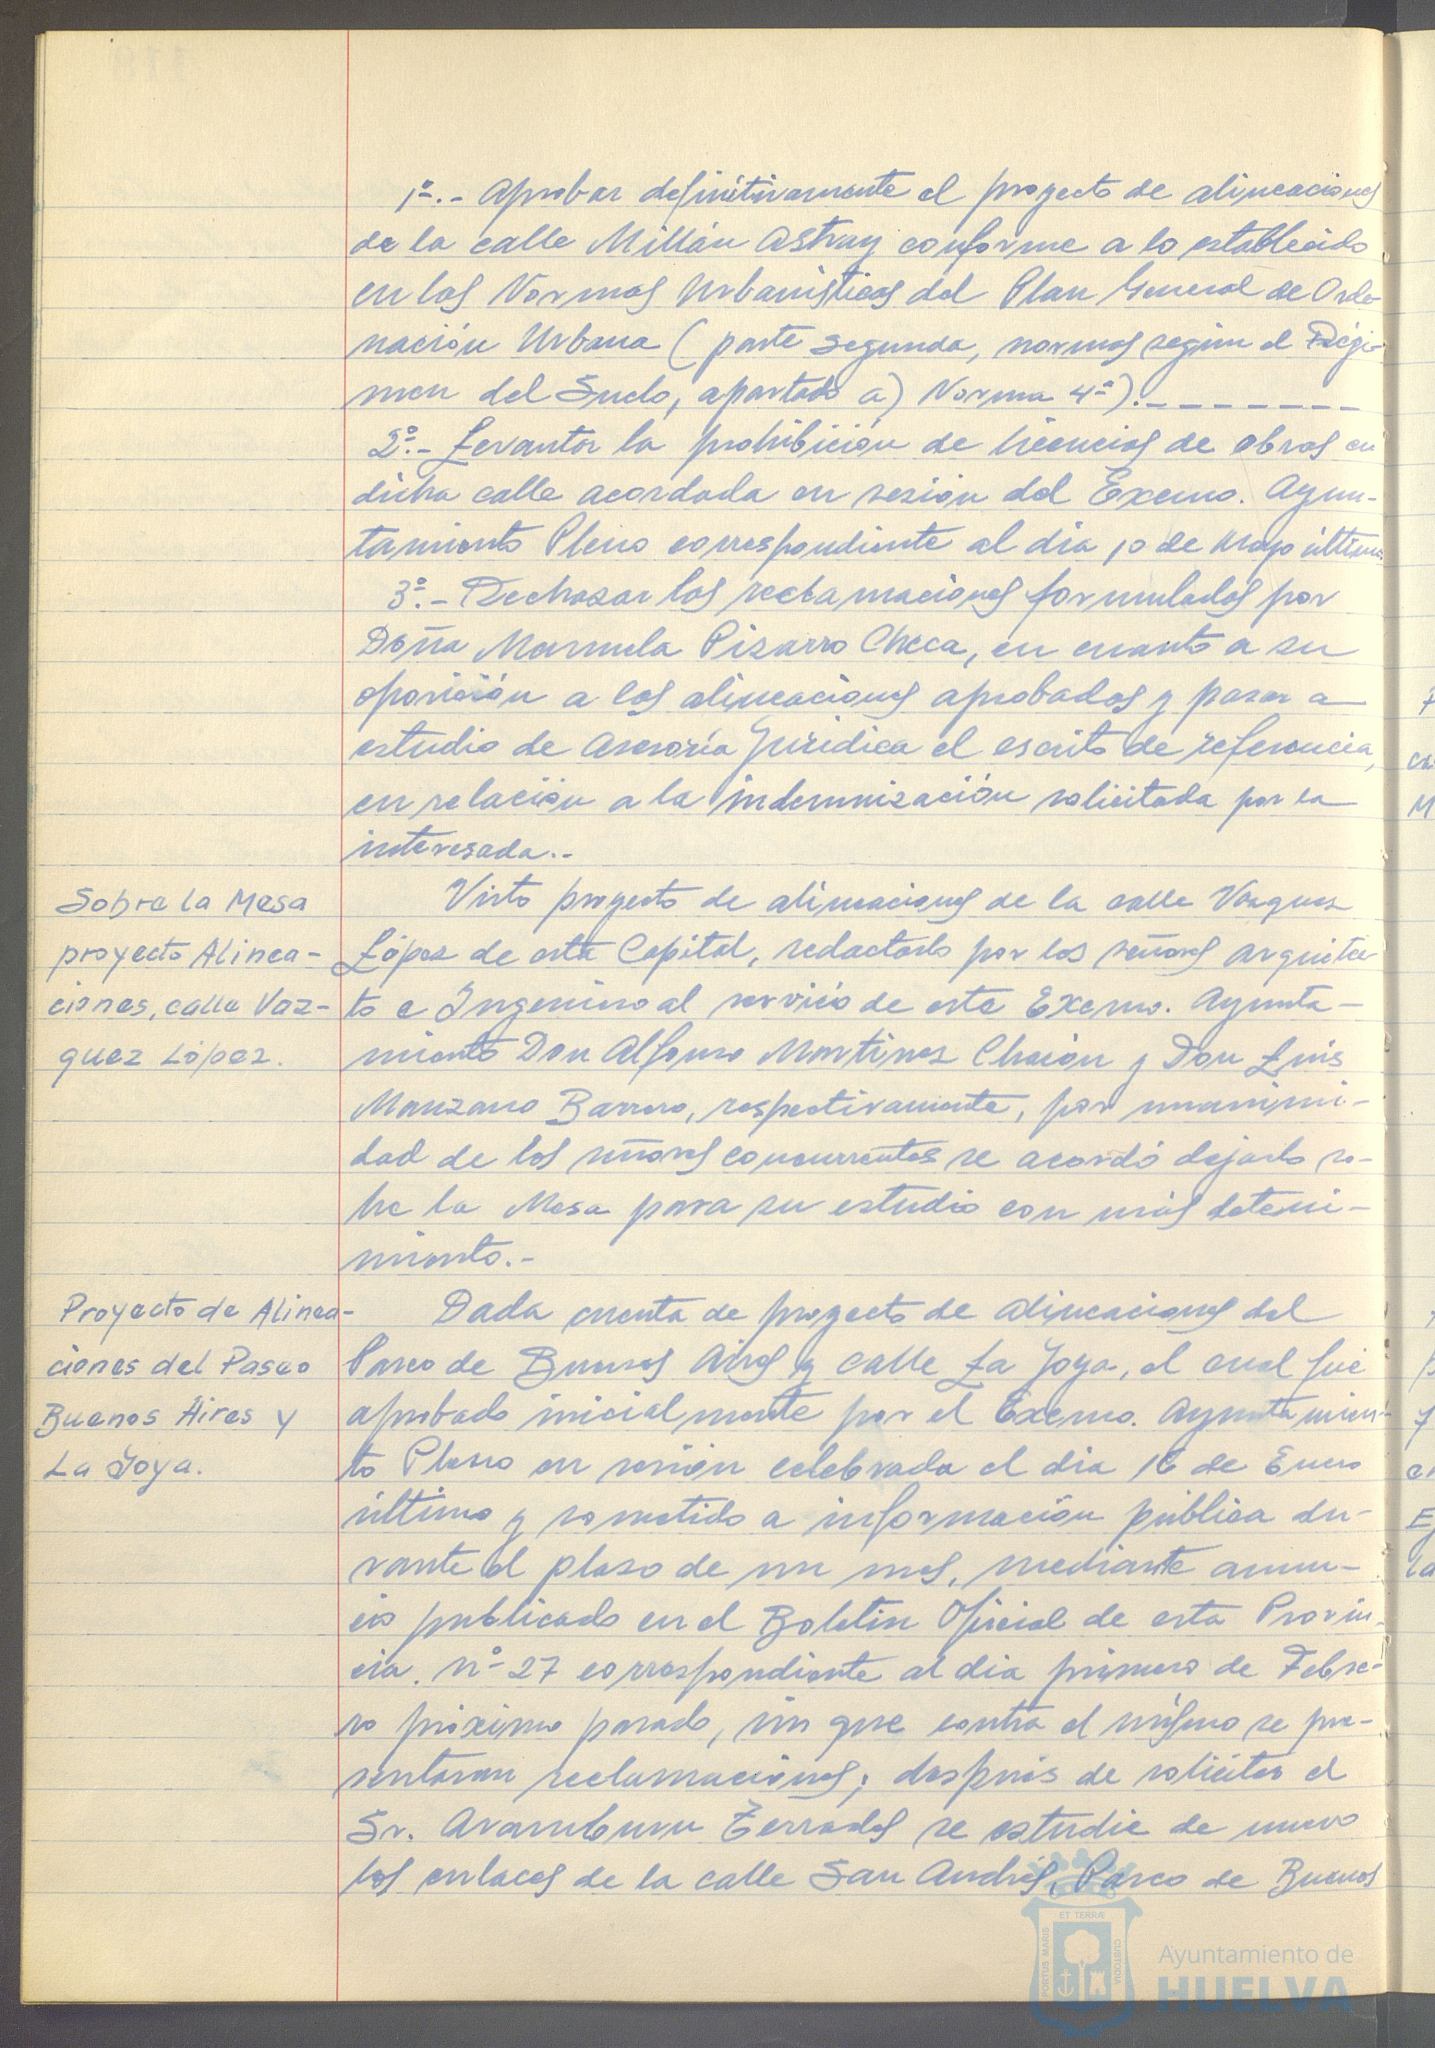 1º.- Aprobar definitivamente el proyecto de alineaciones
de la calle Millán Astray conforme a lo establecido
en las Normas Urbanísticas del Plan General de Orde-
nación Urbana (parte segunda, normas según el Régi-
men del Suelo, apartado a) Norma 4ª).- - - - - - - -
2º.- Levantar la prohibición de licencias de obras en
dicha calle acordada en sesión del Excmo. Ayun-
tamiento Pleno correspondiente al día 10 de Mayo último.
3º.- Rechazar las reclamaciones formuladas por
Doña Manuela Pizarro Checa, en cuanto a su
oposición a las alineaciones aprobadas y pasar a
estudio de Asesoría Jurídica el escrito de referencia,
en relación a la indemnización solicitada por la
interesada.-
Sobre la Mesa
proyecto Alinea-
ciones, calle Vaz-
quez López.
Visto proyecto de alineaciones de la calle Vazquez
López de esta Capital, redactado por los señores Arquitec-
to e Ingeniero al servicio de este Excmo. Ayunta-
miento Don Alfonso Martinez Chacón y Don Luis
Manzano Barrero, respectivamente, por unanimi-
dad de los señores concurrentes se acordó dejarlo so-
bre la Mesa para su estudio con más deteni-
miento.-
Proyecto de Alinea-
ciones del Paseo
Buenos Aires y
La Joya.
Dada cuenta de proyecto de alineaciones del
Paseo de Buenos Aires y calle La Joya, el cual fué
aprobado inicialmente por el Excmo. Ayuntamien-
to Pleno en sesión celebrada el día 16 de Enero
último y sometido a información pública du-
rante el plazo de un mes, mediante anun-
cio publicado en el Boletin Oficial de esta Provin-
cia. nº 27 correspondiente al dia primero de Febre-
ro próximo pasado, sin que contra el mismo se pre-
sentaran reclamaciones; después de solicitar el
Sr. Aramburu Terrades se estudie de nuevo
los enlaces de la calle San Andrés, Paseo de Buenos
PORTUS MARIS
ET TERRÆ
CUSTODIA
Ayuntamiento de
HUELVA